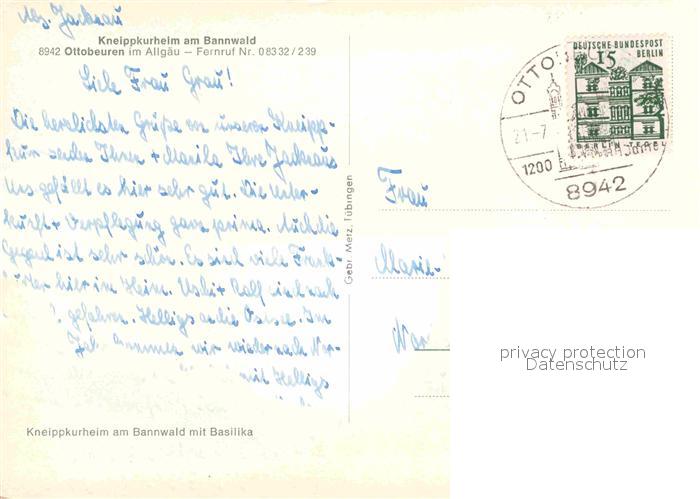 Abs. Jacknau
Kneippkurheim am Bannwald
8942 Ottobeuren im Allgäu – Fernruf Nr. 08332/239
Liebe Frau Grau!
Die herzlichsten Grüße von unserer Kneipp-
kur senden Ihnen + Marita Ihre Jacknaus
Uns gefällt es hier sehr gut. Die Unter-
kunft + Verpflegung ganz prima. Auch die
Gegend ist sehr schön. Es sind viele Frank-
hier im Heim. Uschi + Rolf sind nach
gefahren. Helligs an die Ostsee. Im
wir wieder nach Nor-
mit Helligs
Kneippkurheim am Bannwald mit Basilika
Gebr. Metz, Tübingen
DEUTSCHE BUNDESPOST
BERLIN
15
BERLIN-TEGEL
OTTO
21.-7
1200
8942
Frau
Marie-
privacy protection
Datenschutz